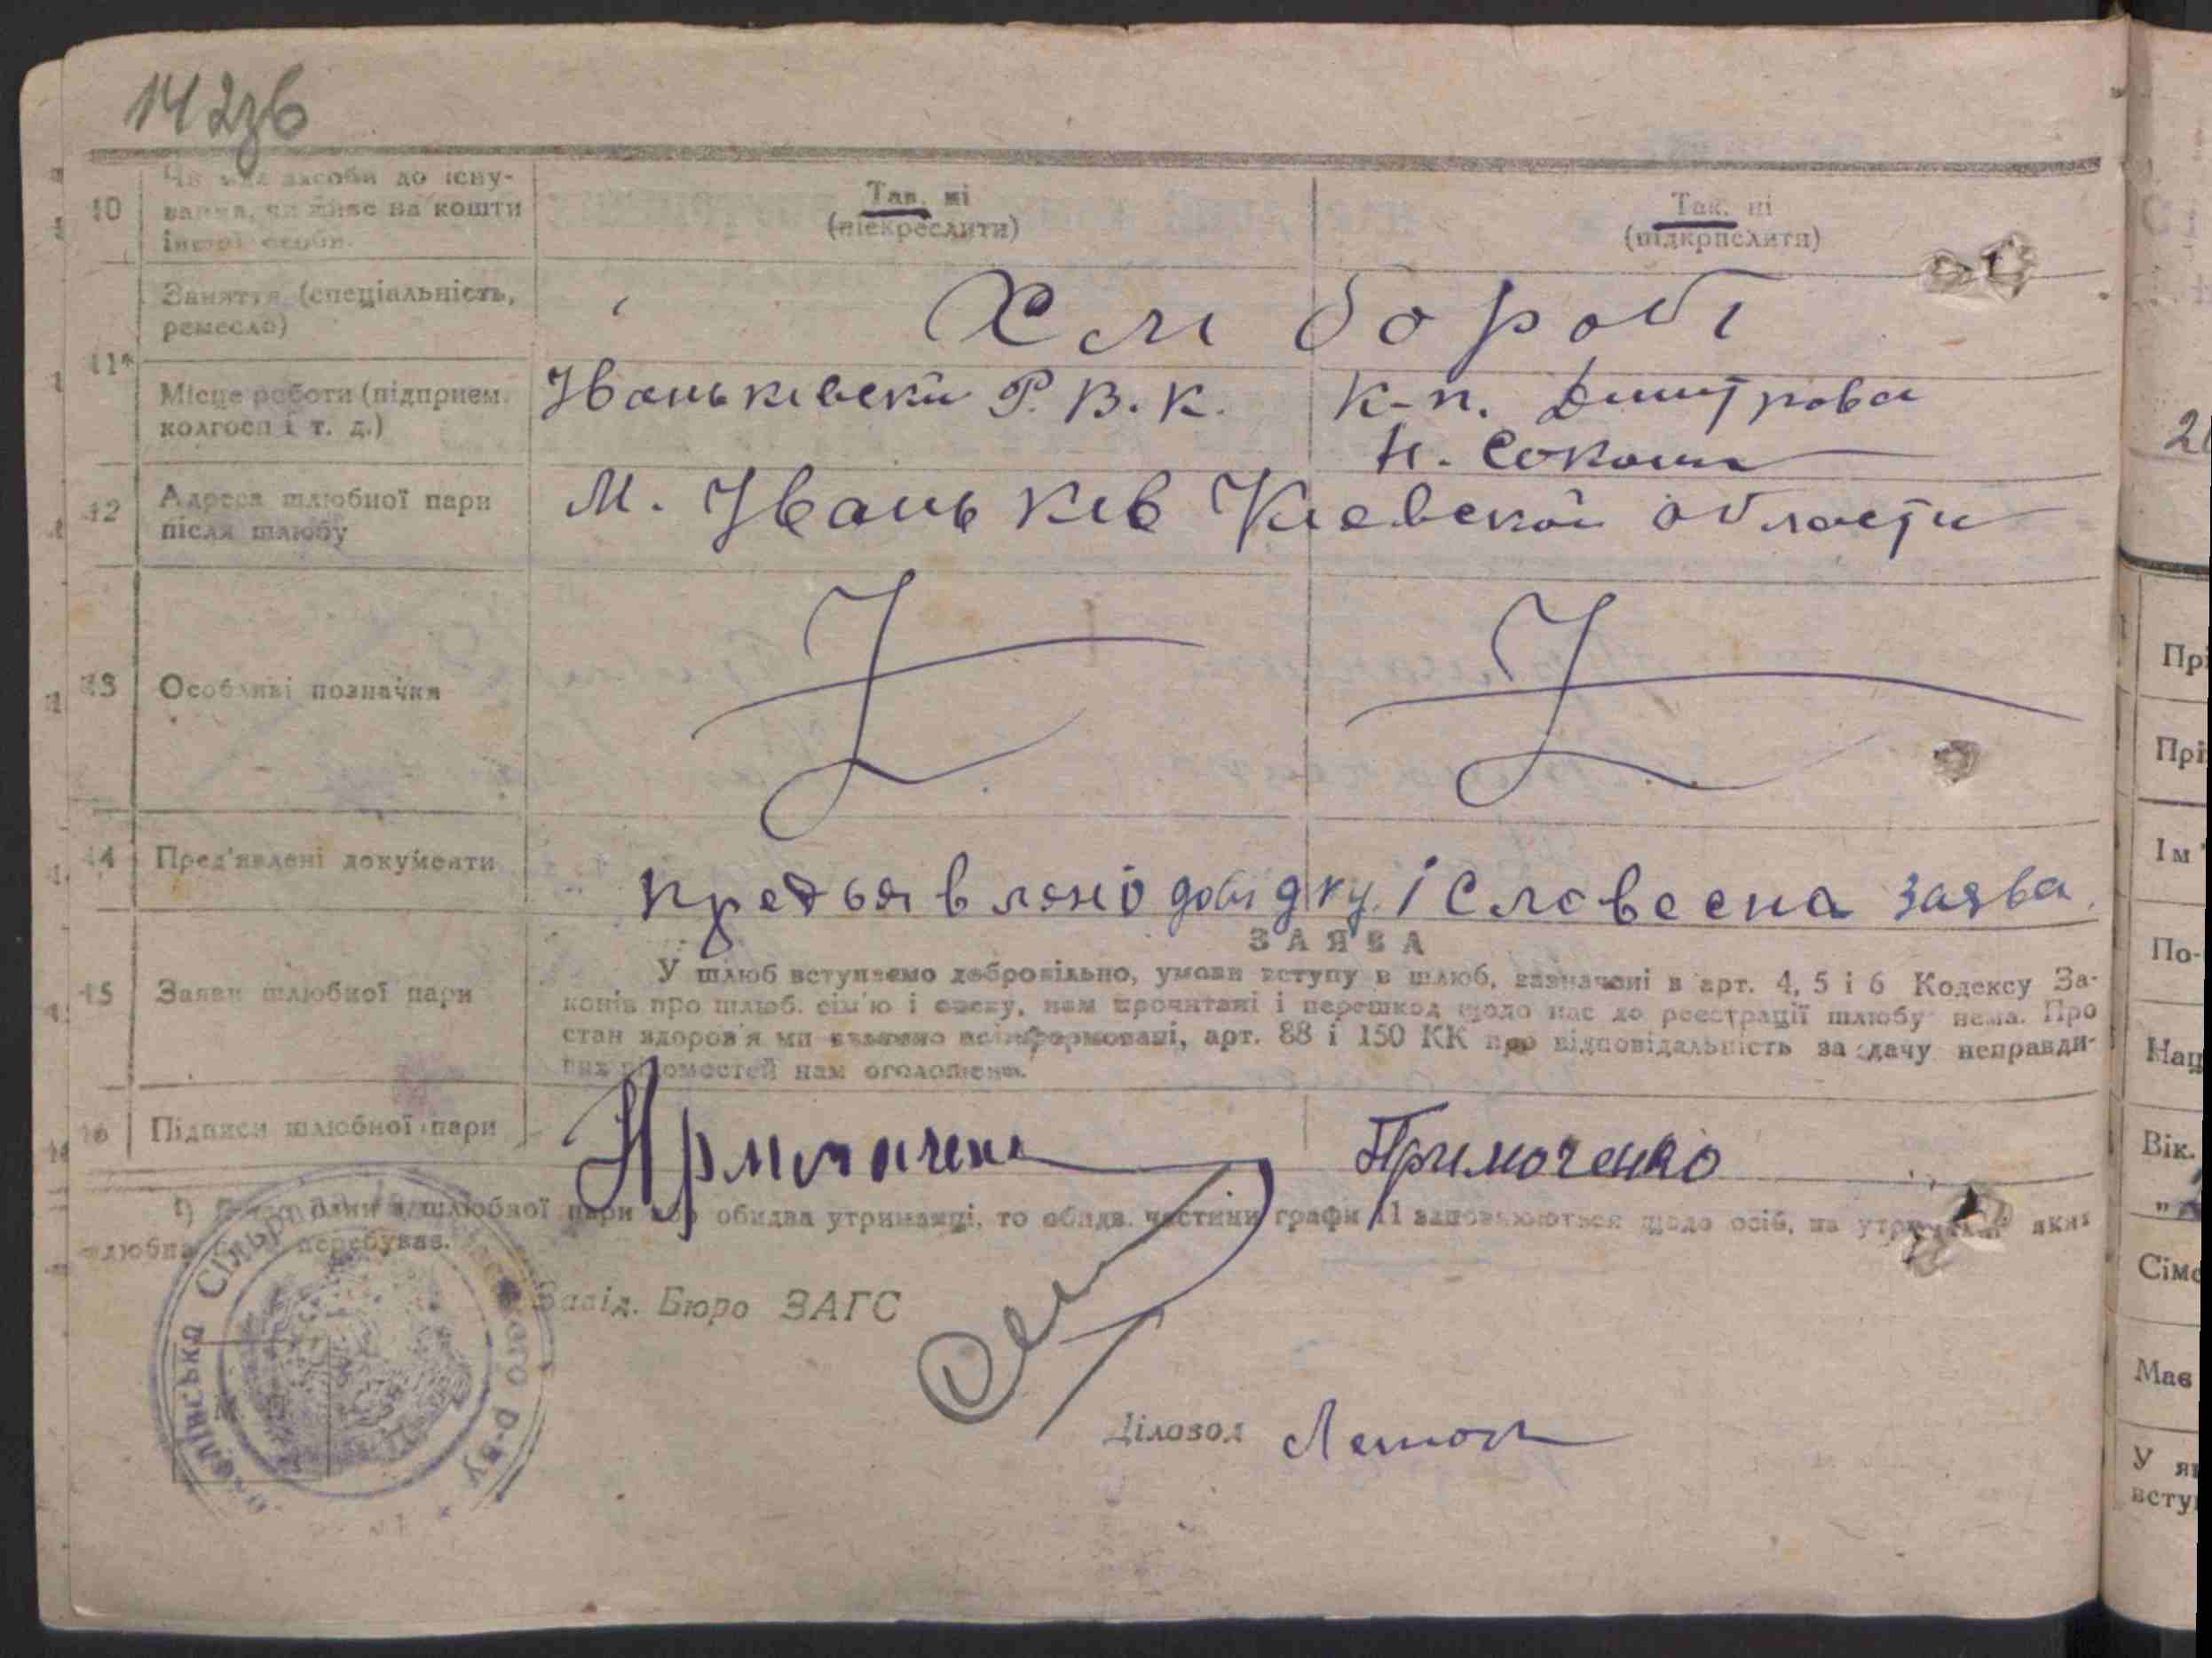 142зв
10
Чи має засоби до існу-
вання, чи живе на кошти
іншої особи.
Так, ні
(підкреслити)
Так, ні
(підкрпслити)
11*
Заняття (спеціальність,
ремесло)
Хлі бороб
Місце роботи (підприєм.
колгосп і т. д.)
Іваньківски Р. В. К.
к-п. Димитрова
12
Адреса шлюбної пари
після шлюбу
М. Іваньків Киевской области
13
Особливі позначки
14
Пред'явлені документи
предьявляно довідку і словесна заява.
15
Заяви шлюбної пари
ЗАЯВА
У шлюб вступаємо добровільно, умови вступу в шлюб, зазначені в арт. 4, 5 і 6 Кодексу За-
конів про шлюб. сім'ю і опеку, нам прочитані і перешкод щодо нас до реєстрації шлюбу нема. Про
стан здоров'я ми взаємно поінформовані, арт. 88 і 150 КК про відповідальність за дачу неправди-
вих відомостей нам оголошено.
16
Підписи шлюбної пари
Примоченко
1) пари або обидва утриманці, то обидві частини графи 11 заповнюються щодо осіб, на утриманні яких
перебував.
Завід. Бюро ЗАГС
Діловод
Сільрада
р-ну
Прі
Ім
По-
Нац
Вік.
Має
У я
всту